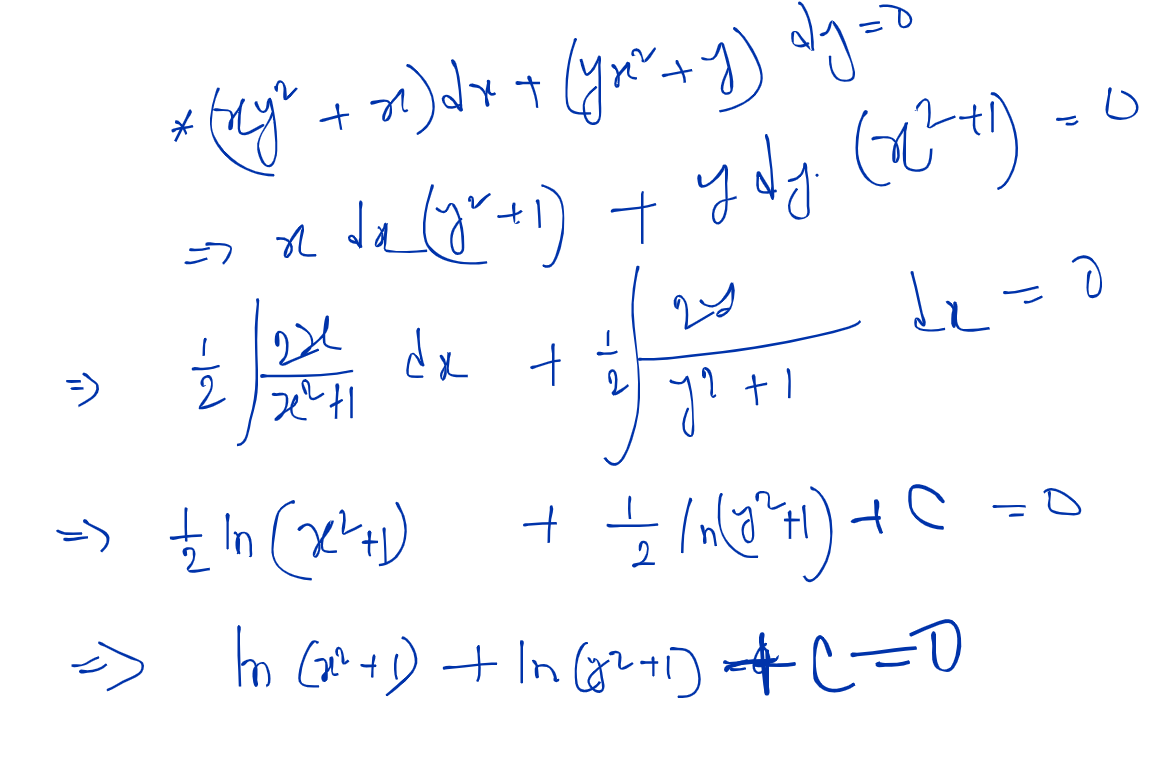 * (xy² + x) dx + (yx² + y) dy = 0
=> x dx (y² + 1) + y dy. (x² + 1) = 0
=> 1/2 ∫ 2x/(x² + 1) dx + 1/2 ∫ 2y/(y² + 1) dx = 0
=> 1/2 ln (x² + 1) + 1/2 ln (y² + 1) + C = 0
=> ln (x² + 1) + ln (y² + 1) + C = 0